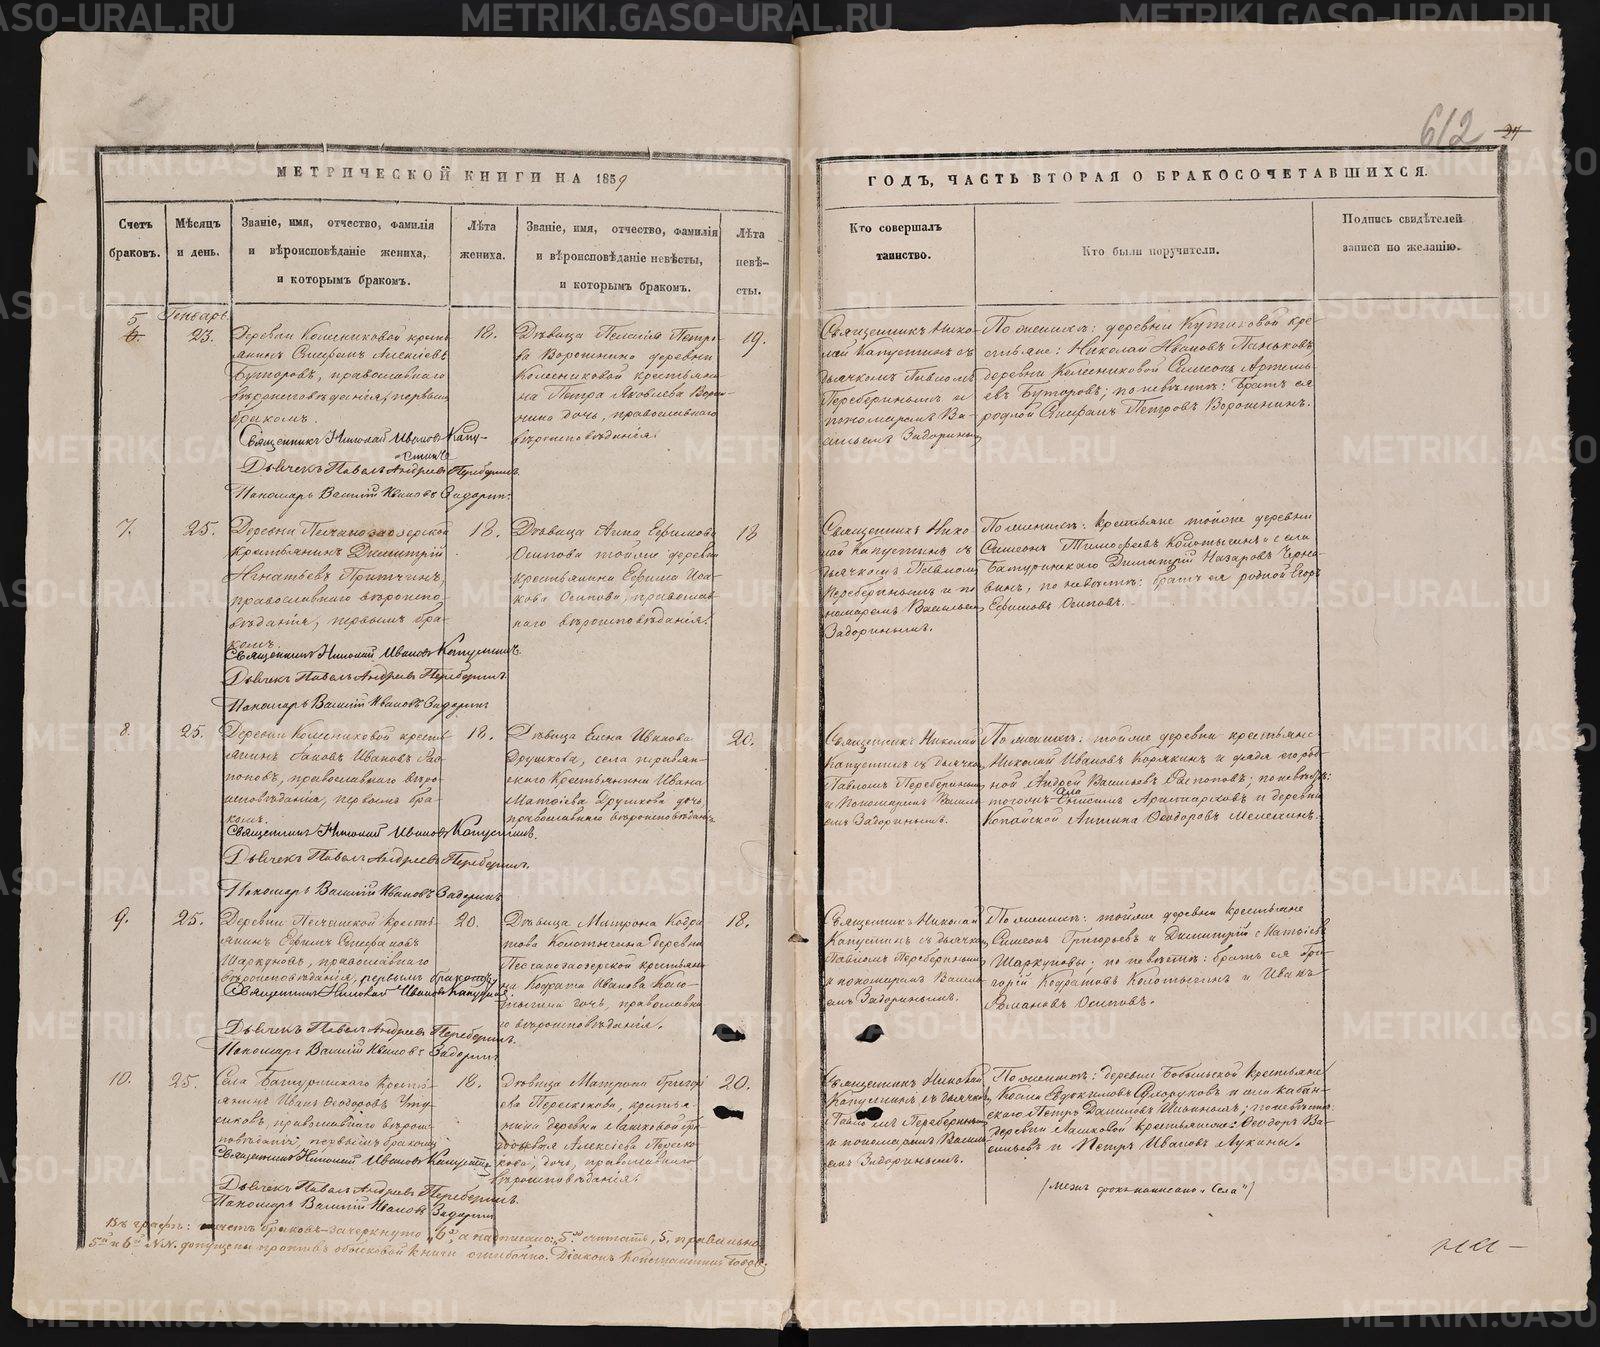 612 27
МЕТРИЧЕСКОЙ КНИГИ НА 1859
ГОДЪ, ЧАСТЬ ВТОРАЯ О БРАКОСОЧЕТАВШИХСЯ.
Счетъ
браковъ.
Мѣсяцъ
и день.
Званіе, имя, отчество, фамилія
и вѣроисповѣданіе жениха,
и которымъ бракомъ.
Лѣта
жениха.
Званіе, имя, отчество, фамилія
и вѣроисповѣданіе невѣсты,
и которымъ бракомъ.
Лѣта
невѣ-
сты.
Кто совершалъ
таинство.
Кто были поручители.
Подпись свидѣтелей
записи по желанію.
Генварь.
5
6.
23.
Деревни Колесниковой кресть
янинъ Стефанъ Алексѣевъ
Буторовъ, православнаго
вѣроисповѣданія, первымъ
бракомъ.
Священникъ Николай Ивановъ Капу-
стинъ
Дьячекъ Павелъ Андреевъ Переберинъ.
Пономарь Василій Ивановъ Задоринъ.
18.
Дѣвица Пелагія Петро
ва Воронина деревни
Колесниковой крестьяни
на Петра Яковлева Воро-
нина дочь, православнаго
вѣроисповѣданія.
19.
Священникъ Нико
лай Капустинъ съ
дьячкомъ Павломъ
Переберинымъ и
пономаремъ Ва-
сильемъ Задоринымъ
По женихѣ: деревни Кутиковой кре-
стьяне: Николай Ивановъ Паньковъ,
деревни Колесниковой Симеонъ Артемь-
евъ Буторовъ; по невѣстѣ: братъ ея
родной Стефанъ Петровъ Воронинъ.
7.
25.
Деревни Песчаноозерской
крестьянинъ Димитрій
Игнатьевъ Притчинъ,
православнаго вѣроиспо-
вѣданія, первымъ бра-
комъ.
Священникъ Николай Ивановъ Капустинъ.
Дьячекъ Павелъ Андреевъ Переберинъ.
Пономарь Василій Ивановъ Задоринъ
18.
Дѣвица Анна Ефимова
Осипова тойже деревни
крестьянина Ефима Иса-
кова Осипова, православ-
наго вѣроисповѣданія.
18
Священникъ Нико
лай Капустинъ съ
дьячкомъ Павломъ
Переберинымъ и по
номаремъ Васильемъ
Задоринымъ.
По женихѣ: крестьяне тойже деревни
Симеонъ Тимофеевъ Колотыгинъ и села
Батуринскаго Димитрій Назаровъ Черно-
выхъ, по невѣстѣ: братъ ея родной Егоръ
Ефимовъ Осиповъ.
8.
25.
Деревни Колесниковой кресть
янинъ Іаковъ Ивановъ Рас
поповъ, православнаго вѣро
исповѣданія, первымъ бра-
комъ.
Священникъ Николай Ивановъ Капустинъ.
Дьячекъ Павелъ Андреевъ Переберинъ.
Пономарь Василій Ивановъ Задоринъ
18.
Дѣвица Елена Иванова
Друшкова, села
крестьянина Ивана
Матвіева Друшкова дочь,
православнаго вѣроисповѣданія
20.
Священникъ Николай
Капустинъ съ дьячкомъ
Павломъ Переберинымъ
и Пономаремъ Василь
емъ Задоринымъ.
По женихѣ: тойже деревни крестьяне
Николай Ивановъ Корякинъ и дядя его род
ной Андрей Васильевъ Распоповъ; по невѣстѣ:
тогоже села Анисимъ Аристарховъ и деревни
Ѳеодоровъ
9.
25.
Деревни Песчанской кресть-
янинъ Ефимъ Стефановъ
Шаркуновъ, православнаго
вѣроисповѣданія, первымъ бракомъ.
Священникъ Николай Ивановъ Капустинъ
Дьячекъ Павелъ Андреевъ Переберинъ.
Пономарь Василій Ивановъ Задоринъ
20.
Дѣвица Матрона Кодра
това Колотыгина деревни
Песчаноозерской крестьяни
на Кодрата Иванова Коло-
тыгина дочь, православна
го вѣроисповѣданія.
18.
Священникъ Николай
Капустинъ съ дьячкомъ
Павломъ Переберинымъ
и пономаремъ Василь
емъ Задоринымъ.
По женихѣ: тойже деревни крестьяне
Симеонъ Григорьевъ и Димитрій Матвіевъ
Шаркуновы; по невѣстѣ: братъ ея Гри-
горій Кодратовъ Колотыгинъ и Иванъ
Романовъ Осиповъ.
10.
25.
Села Батуринскаго кресть-
янинъ Иванъ Ѳеодоровъ
православнаго вѣроис
повѣданія, первымъ бракомъ
Священникъ Николай Ивановъ Капустинъ
Дьячекъ Павелъ Андреевъ Переберинъ.
Пономарь Василій Ивановъ Задоринъ
18.
Дѣвица Матрона Григорі
ева крестья-
нина деревни Лашковой Гри
Алексіева
дочь, православнаго
вѣроисповѣданія.
20.
Священникъ Николай
Капустинъ съ дьячкомъ
Павломъ Переберинымъ
и пономаремъ Василь
емъ Задоринымъ.
По женихѣ: деревни Бобыльской крестьяне
Косма Евдокимовъ и села
Петръ Даниловъ Ильиныхъ; по невѣстѣ:
деревни Лашковой крестьяне: Ѳеодоръ Ва-
сильевъ и Петръ Ивановъ Лукины.
(межъ строкъ написано „Села“)
Въ графѣ: счетъ браковъ зачеркнуто „6“, а написано: „5“ считать „5“, правильно
5й и 6й №№. допущены противъ обыскной книги ошибочно. Діаконъ Константинъ Попов.